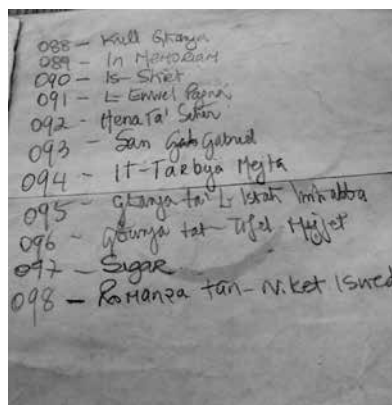 088 - Kull Għanja
089 - In MEMORIAM
090 - Is-Skiet
091 - L-Ewwel
092 - Hena Ta'
093 - San Gabriel
094 - IT-Tarbya Mejta
095 - Għanja tal-L Iskall Imħabba
096 - Għanja tat-Tifel Mejjet
097 - Sigar
098 - Romanza tan-Niket Iswed